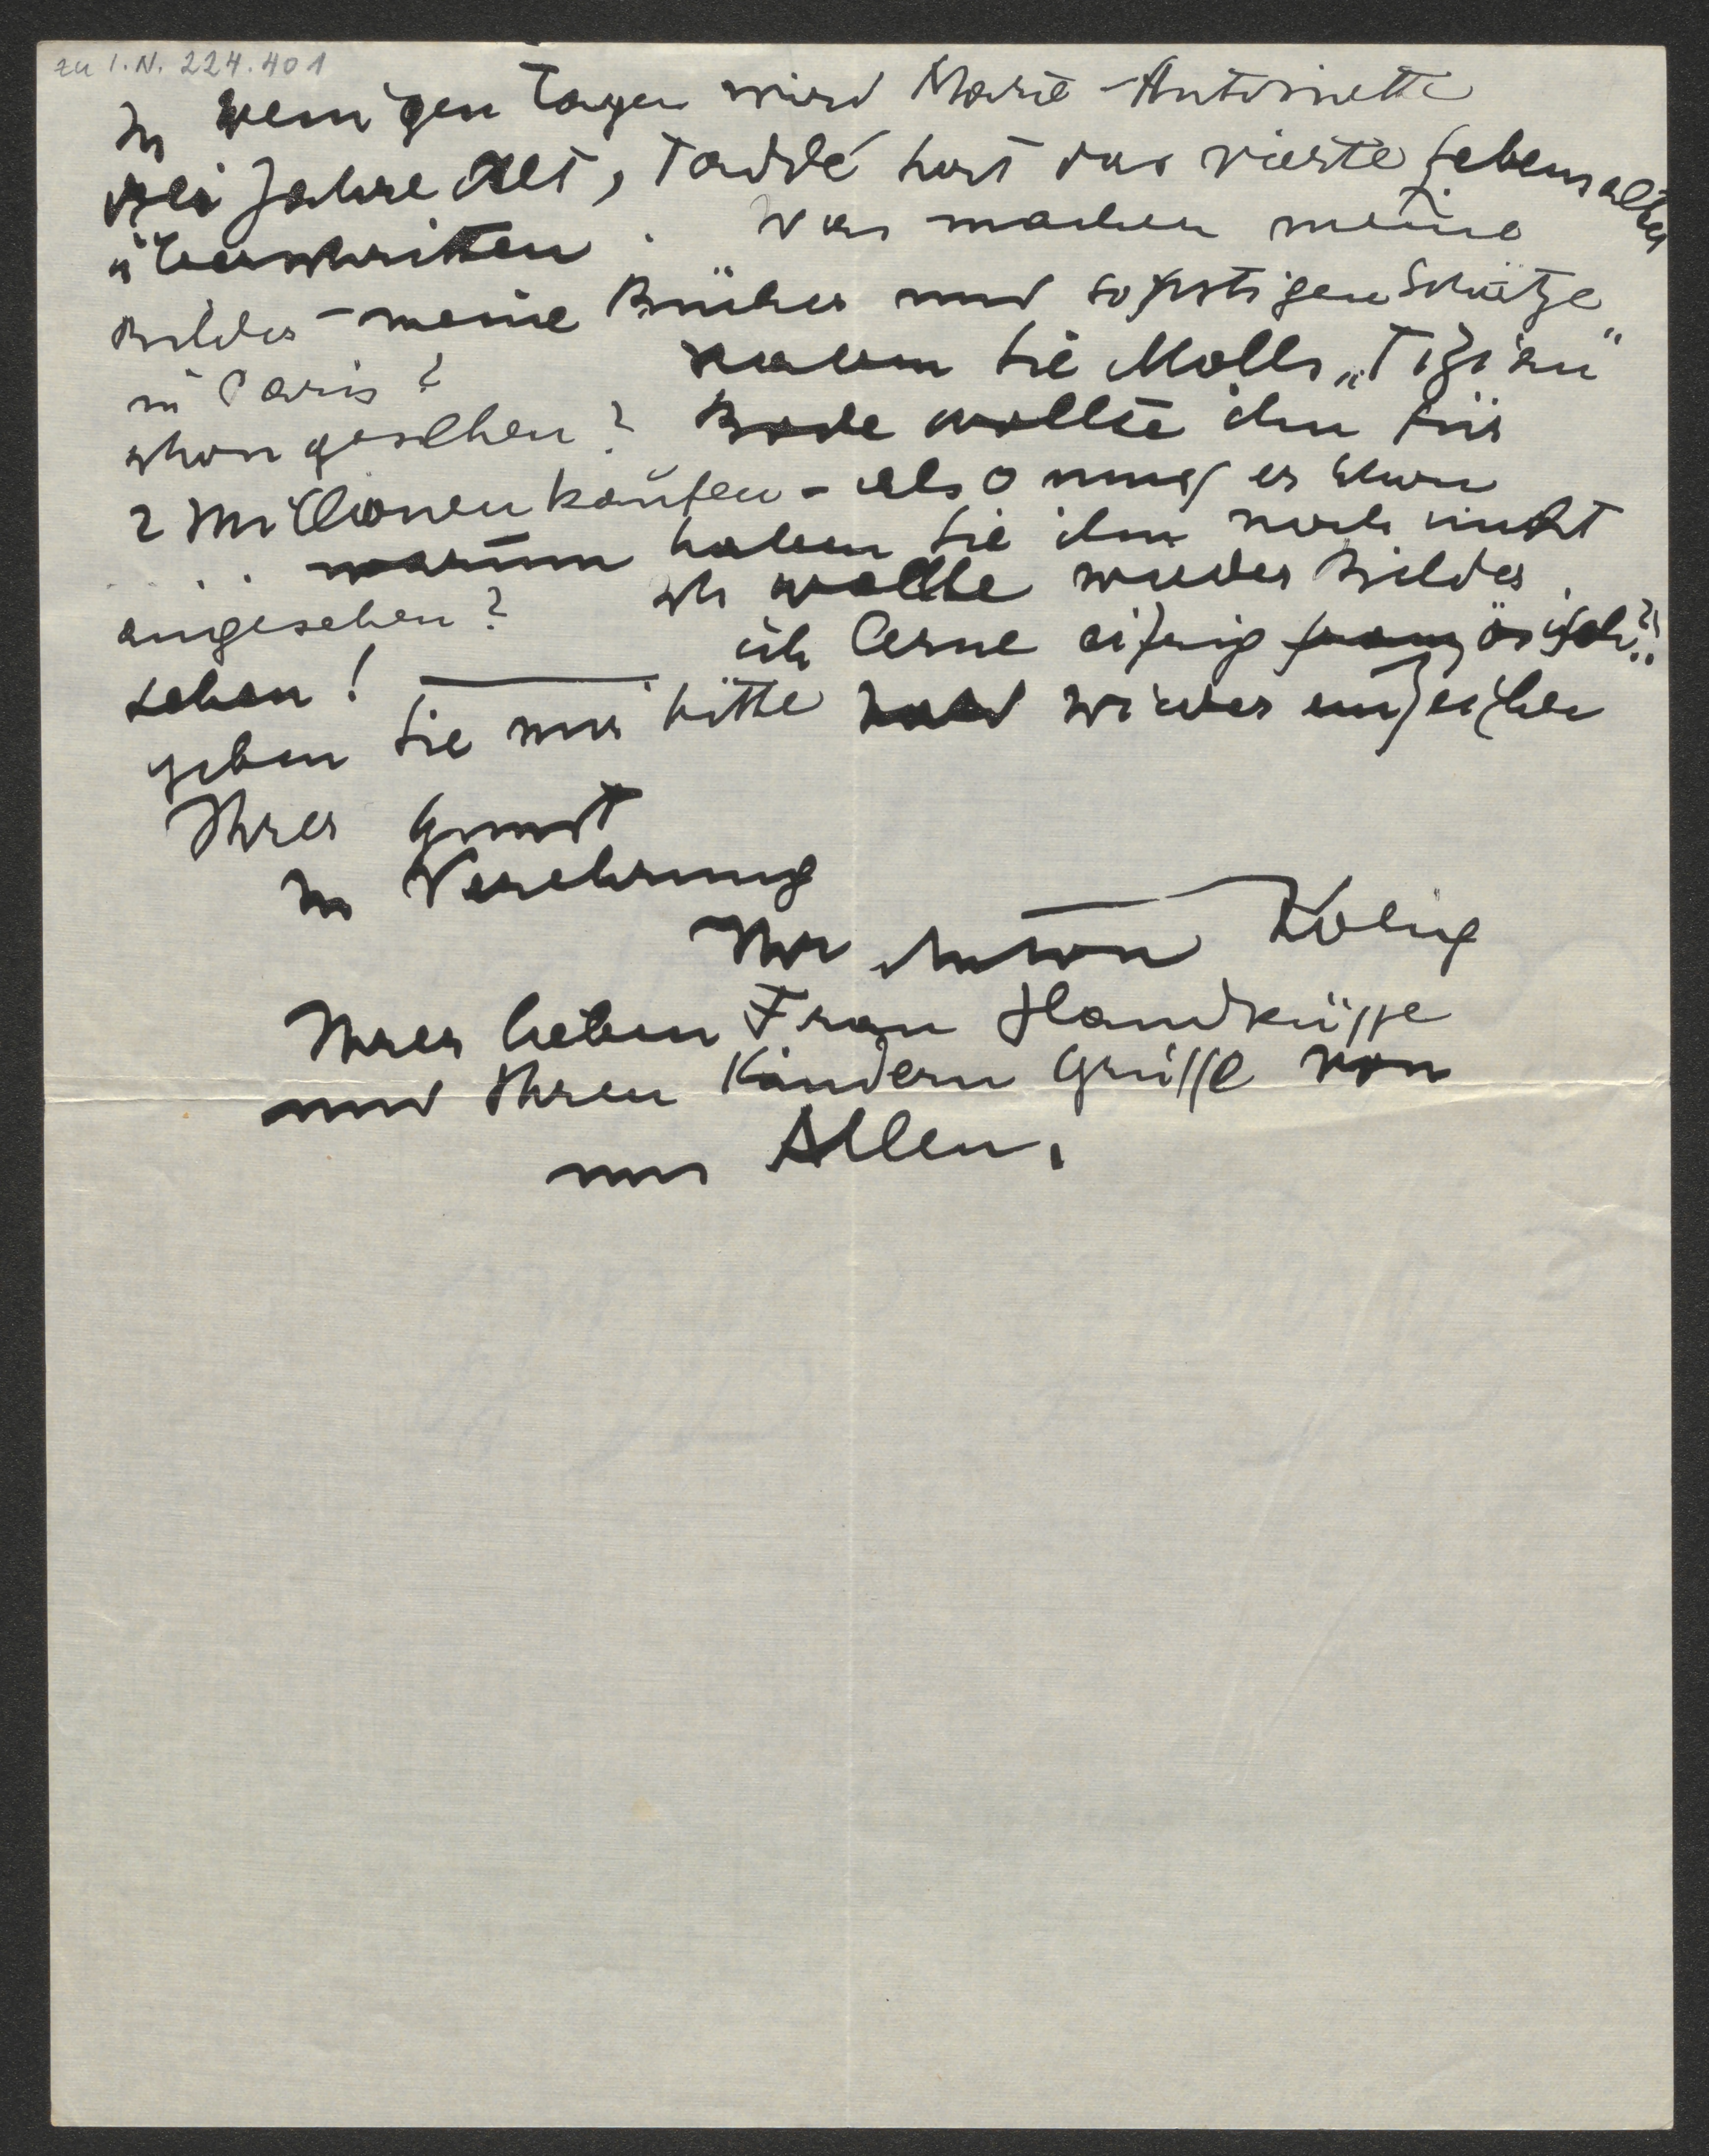 zu I.N. 224.401
In wenigen Tagen wird Marie-Antoinette
drei Jahre alt, Taddé hat das vierte Lebensalter
überschritten. Was machen meine
Bilder – meine Bücher und sonstigen Schätze
in Paris? Haben Sie Molls „Tizian“
schon gesehen? Bode wollte ihn für
2 Millionen kaufen – also muss er schon
.... warum haben Sie ihn noch nicht
angesehen? Ich wollte wieder Bilder
sehen! ich lerne eifrig französisch?!
geben Sie mir bitte bald wieder ein Zeichen
Ihrer Gunst
In Verehrung
Ihr Anton Kolig
Ihrer lieben Frau Handküsse
und Ihren Kindern Grüsse von
uns Allen.